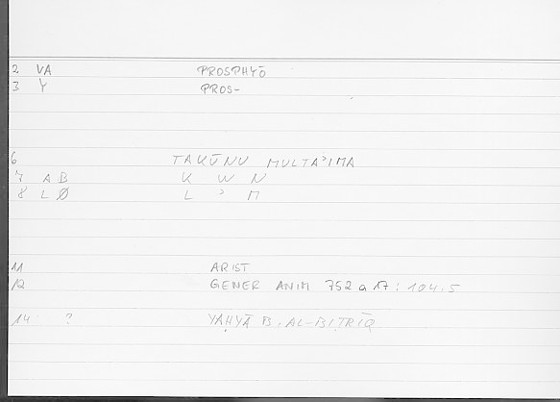 2 VA PROSPHYŌ
3 Y PROS-
6 TAKŪNU MULTAʾIMA
7 AB K W N
8 LØ L ʾ M
11 ARIST
12 GENER ANIM 752 a 17 : 104.5
14 ? YAḤYĀ B. AL-BIṬRĪQ